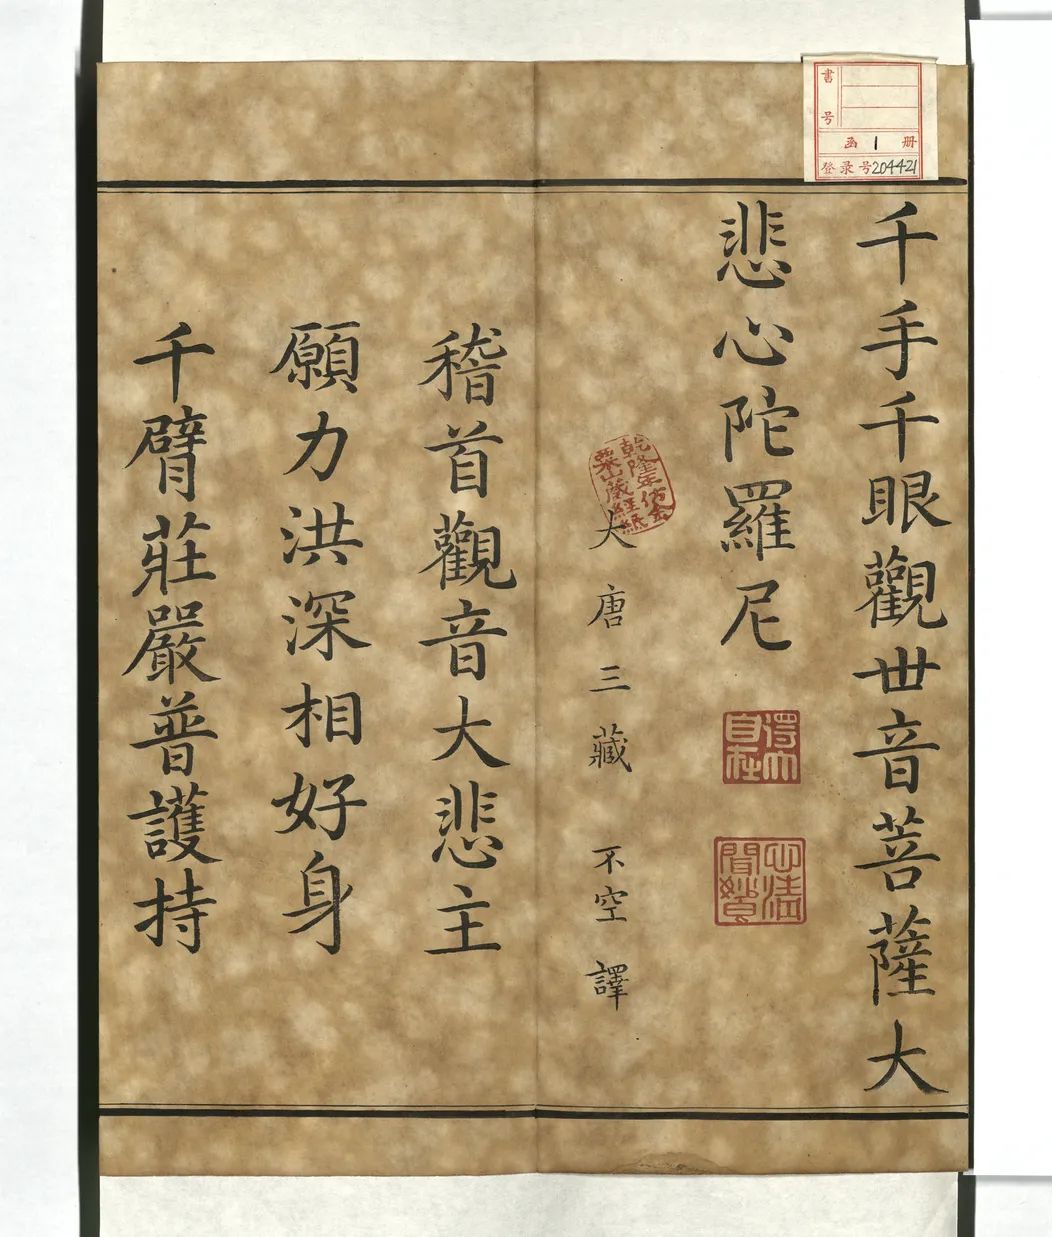 書号
函 1 册
登录号204421
千手千眼觀世音菩薩大
悲心陀羅尼
得大自在
乾隆年仿金粟山藏經紙
大唐三藏 不空譯
稽首觀音大悲主
願力洪深相好身
千臂莊嚴普護持